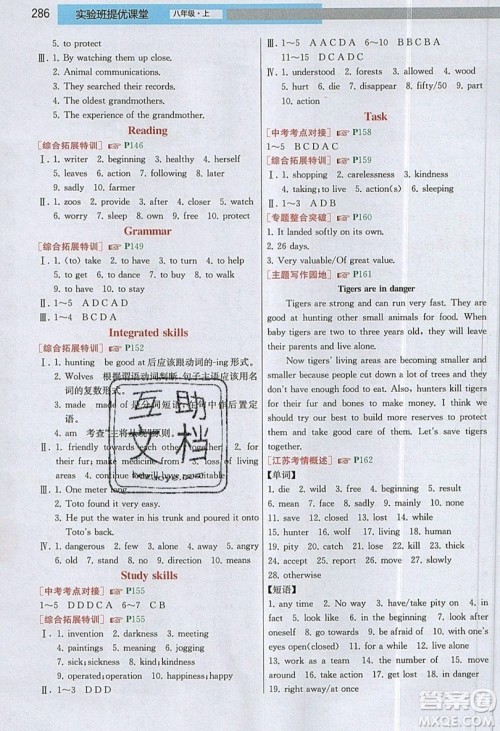 286
实验班提优课堂
八年级·上
5. to protect
Ⅲ. 1. By watching them up close.
2. Animal communications.
3. They searched their records.
4. The oldest grandmothers.
5. The experience of the grandmothers.
Reading
[综合拓展特训] P146
Ⅰ. 1. writer 2. beginning 3. healthy 4. herself
5. leaves 6. action 7. noises 8. following
9. sadly 10. farmers
Ⅱ. 1. zoos 2. provide 3. save 4. moving
5. down
Ⅲ. 1~5 ABCDB
Grammar
[综合拓展特训] P149
Ⅰ. 1. (to) take 2. to have 3. to look 4. to buy
5. to be 6. to keep 7. to get 8. to do 9. not
to go 10. to dance
Ⅱ. 1~5 ADCAD
Integrated skills
[综合拓展特训] P152
Ⅰ. 1. hunting be good at后应该跟动词的-ing形式。
2. Wolves 根据谓语动词判断,句子主语应该用它
的复数形式。
3. made made of是分词短语,在句中作后置定
语。
4. am 考查"主将从现"原则。
Ⅱ. 1. friendly towards each other 2. living
together; both; brothers 3. lose; to 4. for
their fur; make medicine from 5. in danger; no
living areas
Ⅲ. 1. One meter long
2. Toto found it very delicious.
3. He put the water in his trunk and poured it onto
Toto's back.
Ⅳ. 1. dangerous 2. few 3. alone 4. away 5. angry
6. old 7. still 8. 9. standing 10. wrong
Study skills
[中考考点对接] P155
1~5 DDDCA 6~7 CB
[综合拓展特训] P155
Ⅰ. 1. invention 2. darkness 3. meeting
4. paintings 5. meaning 6. jogging
7. sick; sickness 8. kind; kindness
9. operated; operation 10. action; actively
Ⅱ. 1~3 DDD
Ⅲ. 1~5 AACDA 6~10 CBABD
11~15 DCADC
Ⅳ. 1. understood 2. forests 3. allowed 4. wood
5. hurt 6. die 7. disappear 8. fifty/50
9. birds 10. solution
Task
[中考考点对接] P158
1~5 BCDAC
[综合拓展特训] P159
Ⅰ. 1. shopping 2. carelessness 3. kindness
4. taking; to live 5. action(s) 6. sleeping
Ⅱ. 1~3 ADB
[专题整合突破] P160
1. It landed softly on its own.
2. 26 days.
3. Very valuable/Of great value.
[主题写作园地] P161
Tigers are in danger
Tigers are strong and can run very fast. They are
good at hunting other small animals for food. When
baby tigers are two to three years old, they start
to live on their own.
Now tigers' living areas are becoming smaller and
smaller because people cut down lots of trees and
build more houses. Also, hunters kill tigers for
their fur and bones to make money. I think we
should take action to protect them. We should build
more nature reserves and pass laws to protect and
save tigers. Let's do something to protect
them and give them a comfortable home.
[江苏考情概述] P162
[单词]
1. die 2. wild 3. free 4. dish 5. bear
6. end 7. born 8. mean 9. face 10. lost
11. loss 12. law 13. act 14. lose 15. living
16. house 17. pity, catch 18. hunter, hunting
19. pity 20. reject 21. courage
22. closed 23. standing 24. sadly 25. while
26. seriousness 27. medicine
28. otherwise
[短语]
1. any time 2. have pity on 3. in
fact 4. in the beginning 5. at
first 6. go round 7. for example 8. with
eyes open/closed 9. fall over 10. look
around 11. make noises 12. follow
13. as a result 14. in danger 15. because
of 16. take action 17. get lost 18. in danger
19. right away/at once
互助文档
答案圈
MXQE.COM